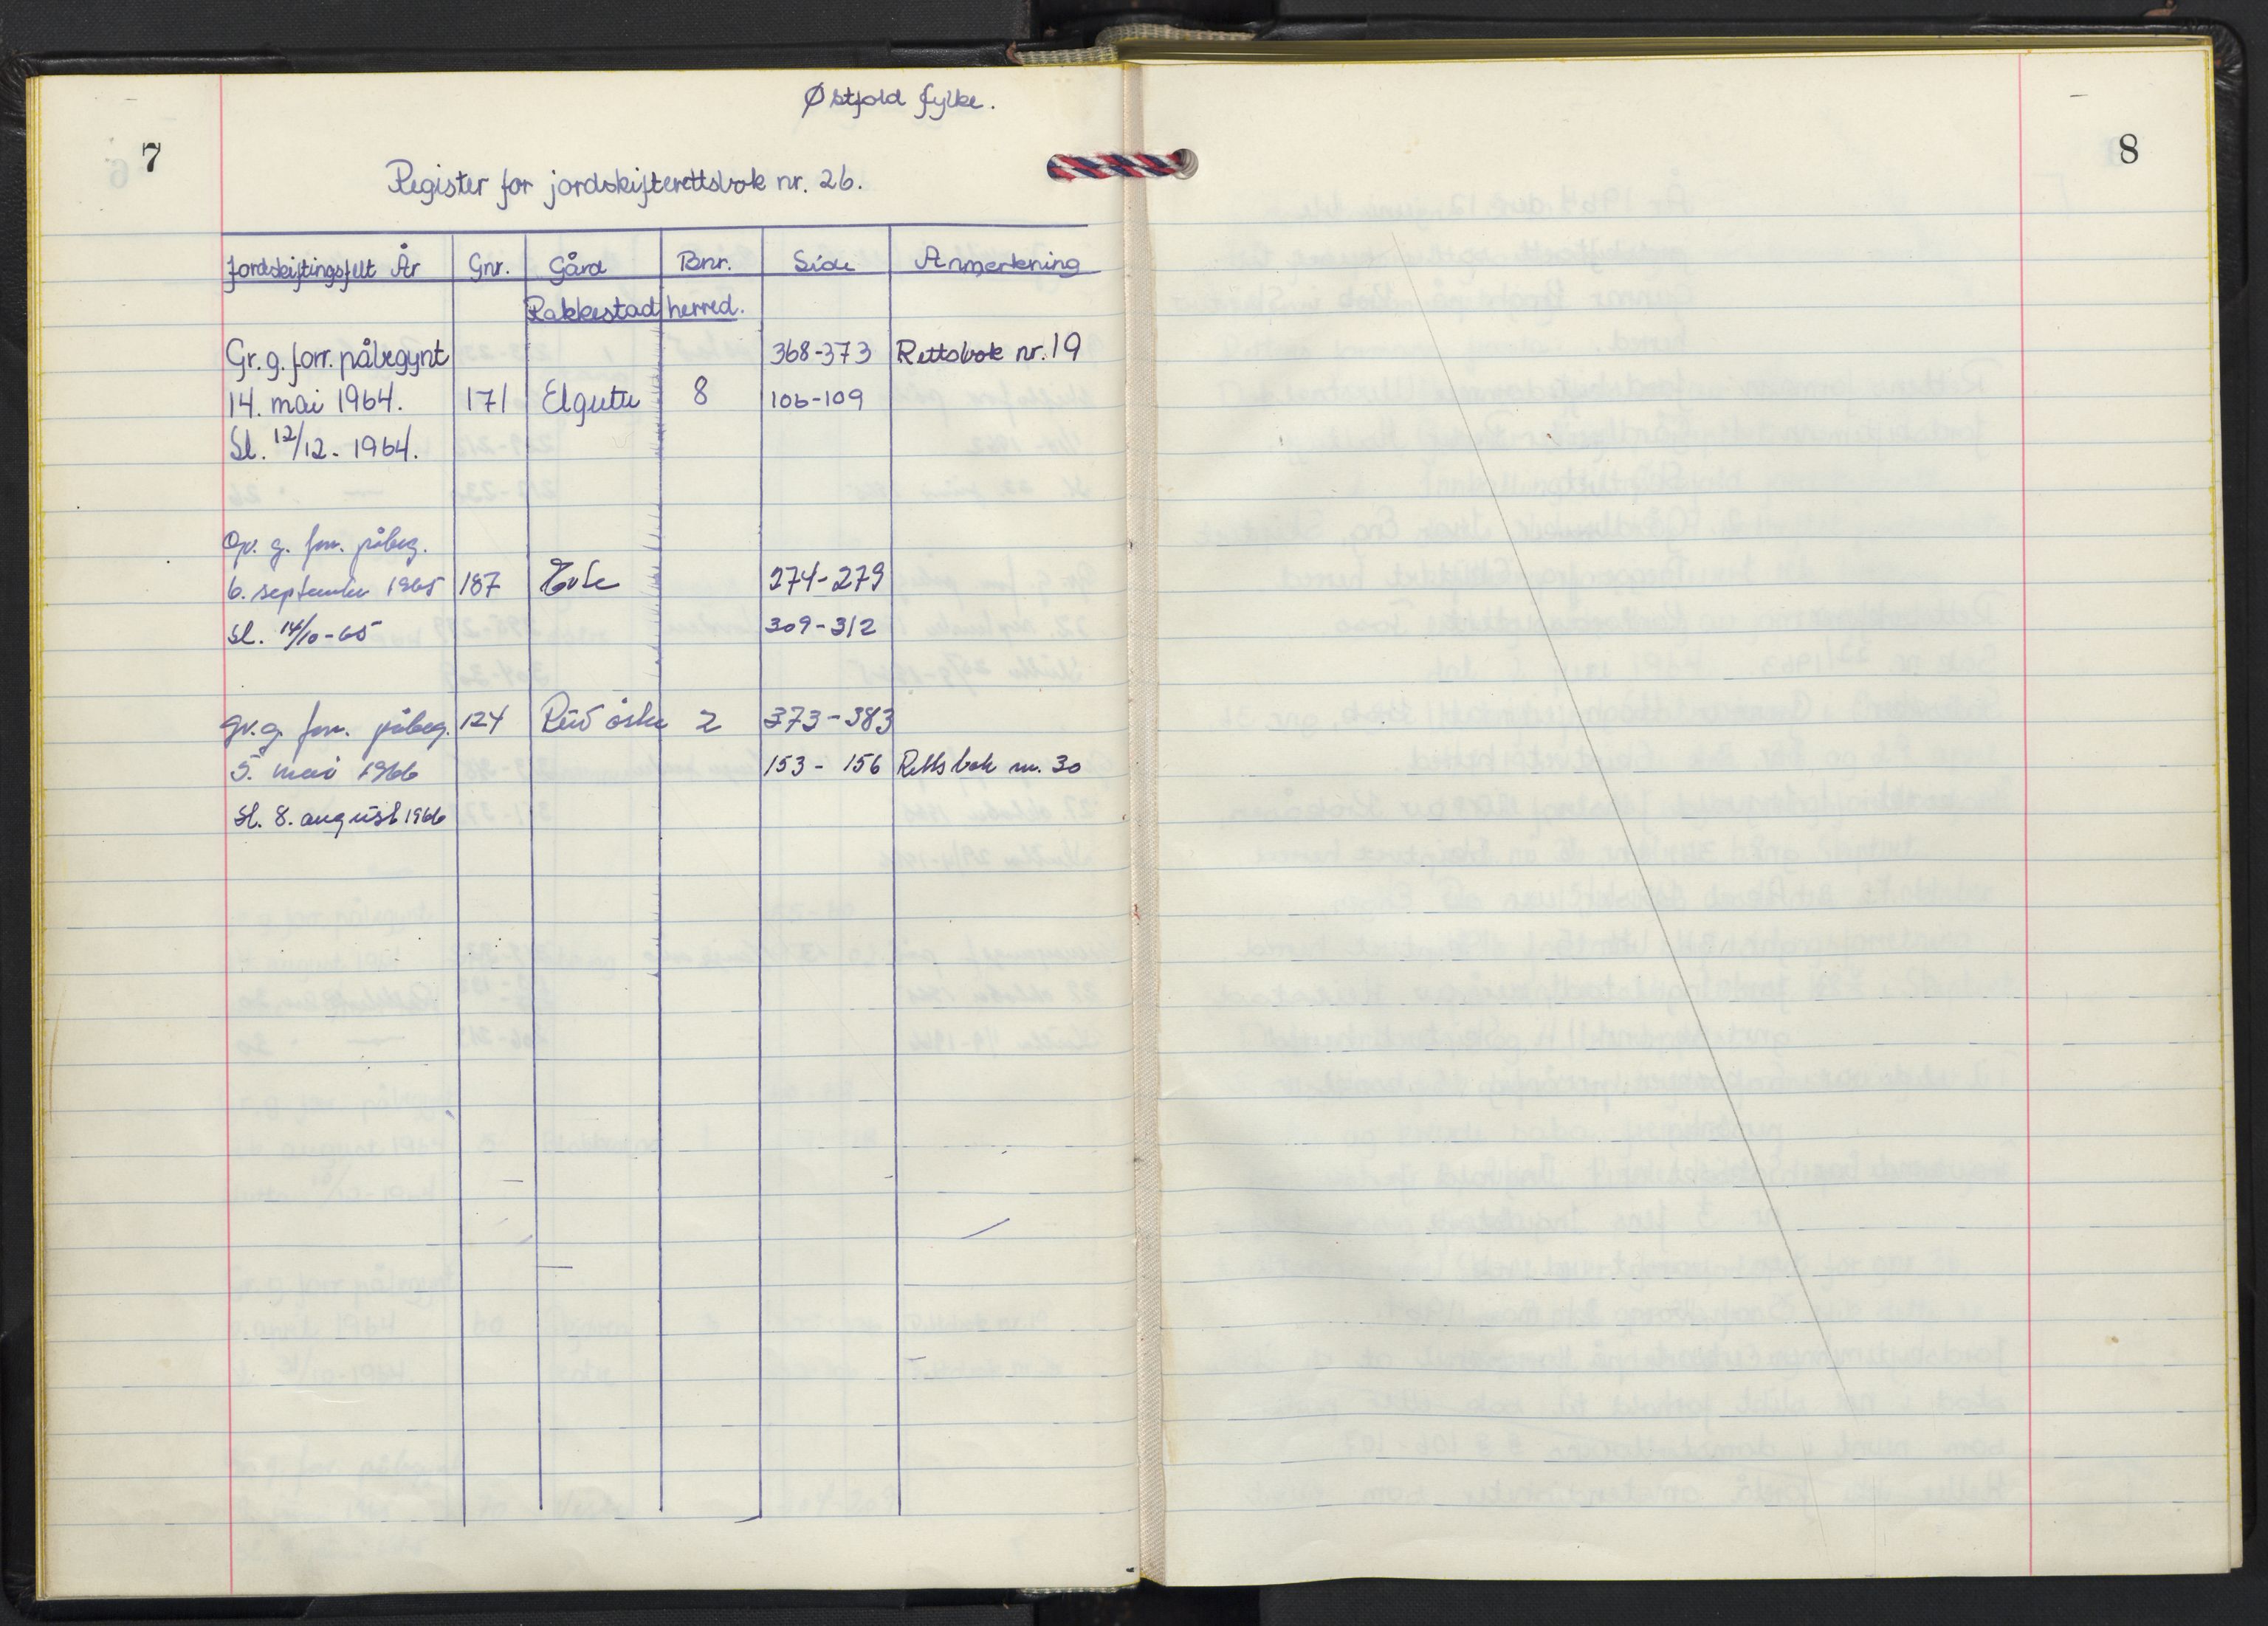 Østfold fylke.
7
8
Register for jordskifterettsbok nr. 26.
Jordskiftingsfelt År Gnr. Gård Bnr. Side Anmerkning
Rakkestad herred.
Gr. g. forr. påbegynt 368-373 Rettsbok nr. 19
14. mai 1964. 171 Elgutu 8 106-109
Sl. 12/12 - 1964.
Gr. g. forr. påbeg.
6. september 1965 187 274-279
Sl. 14/10-65 309-312
Gr. g. forr. påbeg. 124 Rud 2 373-383
5. mai 1966 153-156 Rettsbok nr. 30
Sl. 8. august 1966